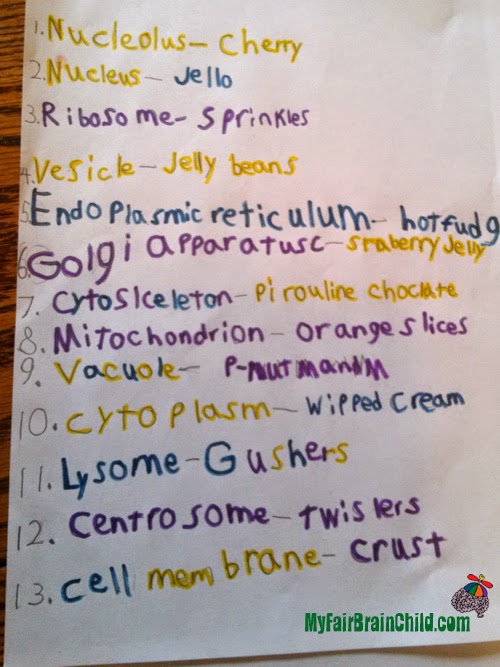 1. Nucleolus- Cherry
2. Nucleus- Jello
3. Ribosome- Sprinkles
4. Vesicle- Jelly beans
5. Endoplasmic reticulum- hotfudg
6. Golgi apparatusc- sraberry Jelly
7. Cytoslceleton- Pirouline choclate
8. Mitochondrion- orange slices
9. Vacuole- P-nut mandm
10. Cytoplasm- wipped cream
11. Lysome- Gushers
12. Centrosome- twislers
13. Cell membrane- crust
MyFairBrainChild.com